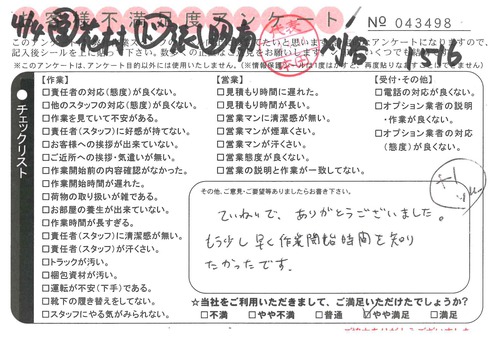 お客様不満足度アンケート
4/4
No 043498
1516
※このアンケートは、アンケート目的以外には使用いたしません。
チェックリスト
【作業】
□責任者の対応(態度)が良くない。
□他のスタッフの対応(態度)が良くない。
□作業を見ていて不安がある。
□責任者(スタッフ)に好感が持てない。
□お客様への挨拶が出来ていない。
□ご近所への挨拶・気遣いが無い。
□作業開始前の内容確認がなかった。
□作業開始時間が遅れた。
□荷物の取り扱いが雑である。
□お部屋の養生が出来ていない。
□作業時間が長すぎる。
□責任者(スタッフ)に清潔感が無い。
□責任者(スタッフ)が汗くさい。
□トラックが汚い。
□梱包資材が汚い。
□運転が不安(下手)である。
□靴下の履き替えをしてない。
□スタッフにやる気がみられない。
【営業】
□見積もり時間に遅れた。
□見積もり時間が長い。
□営業マンに清潔感が無い。
□営業マンが煙草くさい。
□営業マンが汗くさい。
□営業態度が良くない。
□営業の説明と作業が一致してない。
【受付・その他】
□電話の対応が良くない。
□オプション業者の説明
・作業が良くない。
□オプション業者の対応
(態度)が良くない。
その他、ご意見・ご要望等ありましたらお書き下さい。
ていねいで、ありがとうございました。
もう少し早く作業開始時間を知り
たかったです。
☆当社をご利用いただきまして、ご満足いただけたでしょうか?
□不満 □やや不満 □普通 □やや満足 □満足